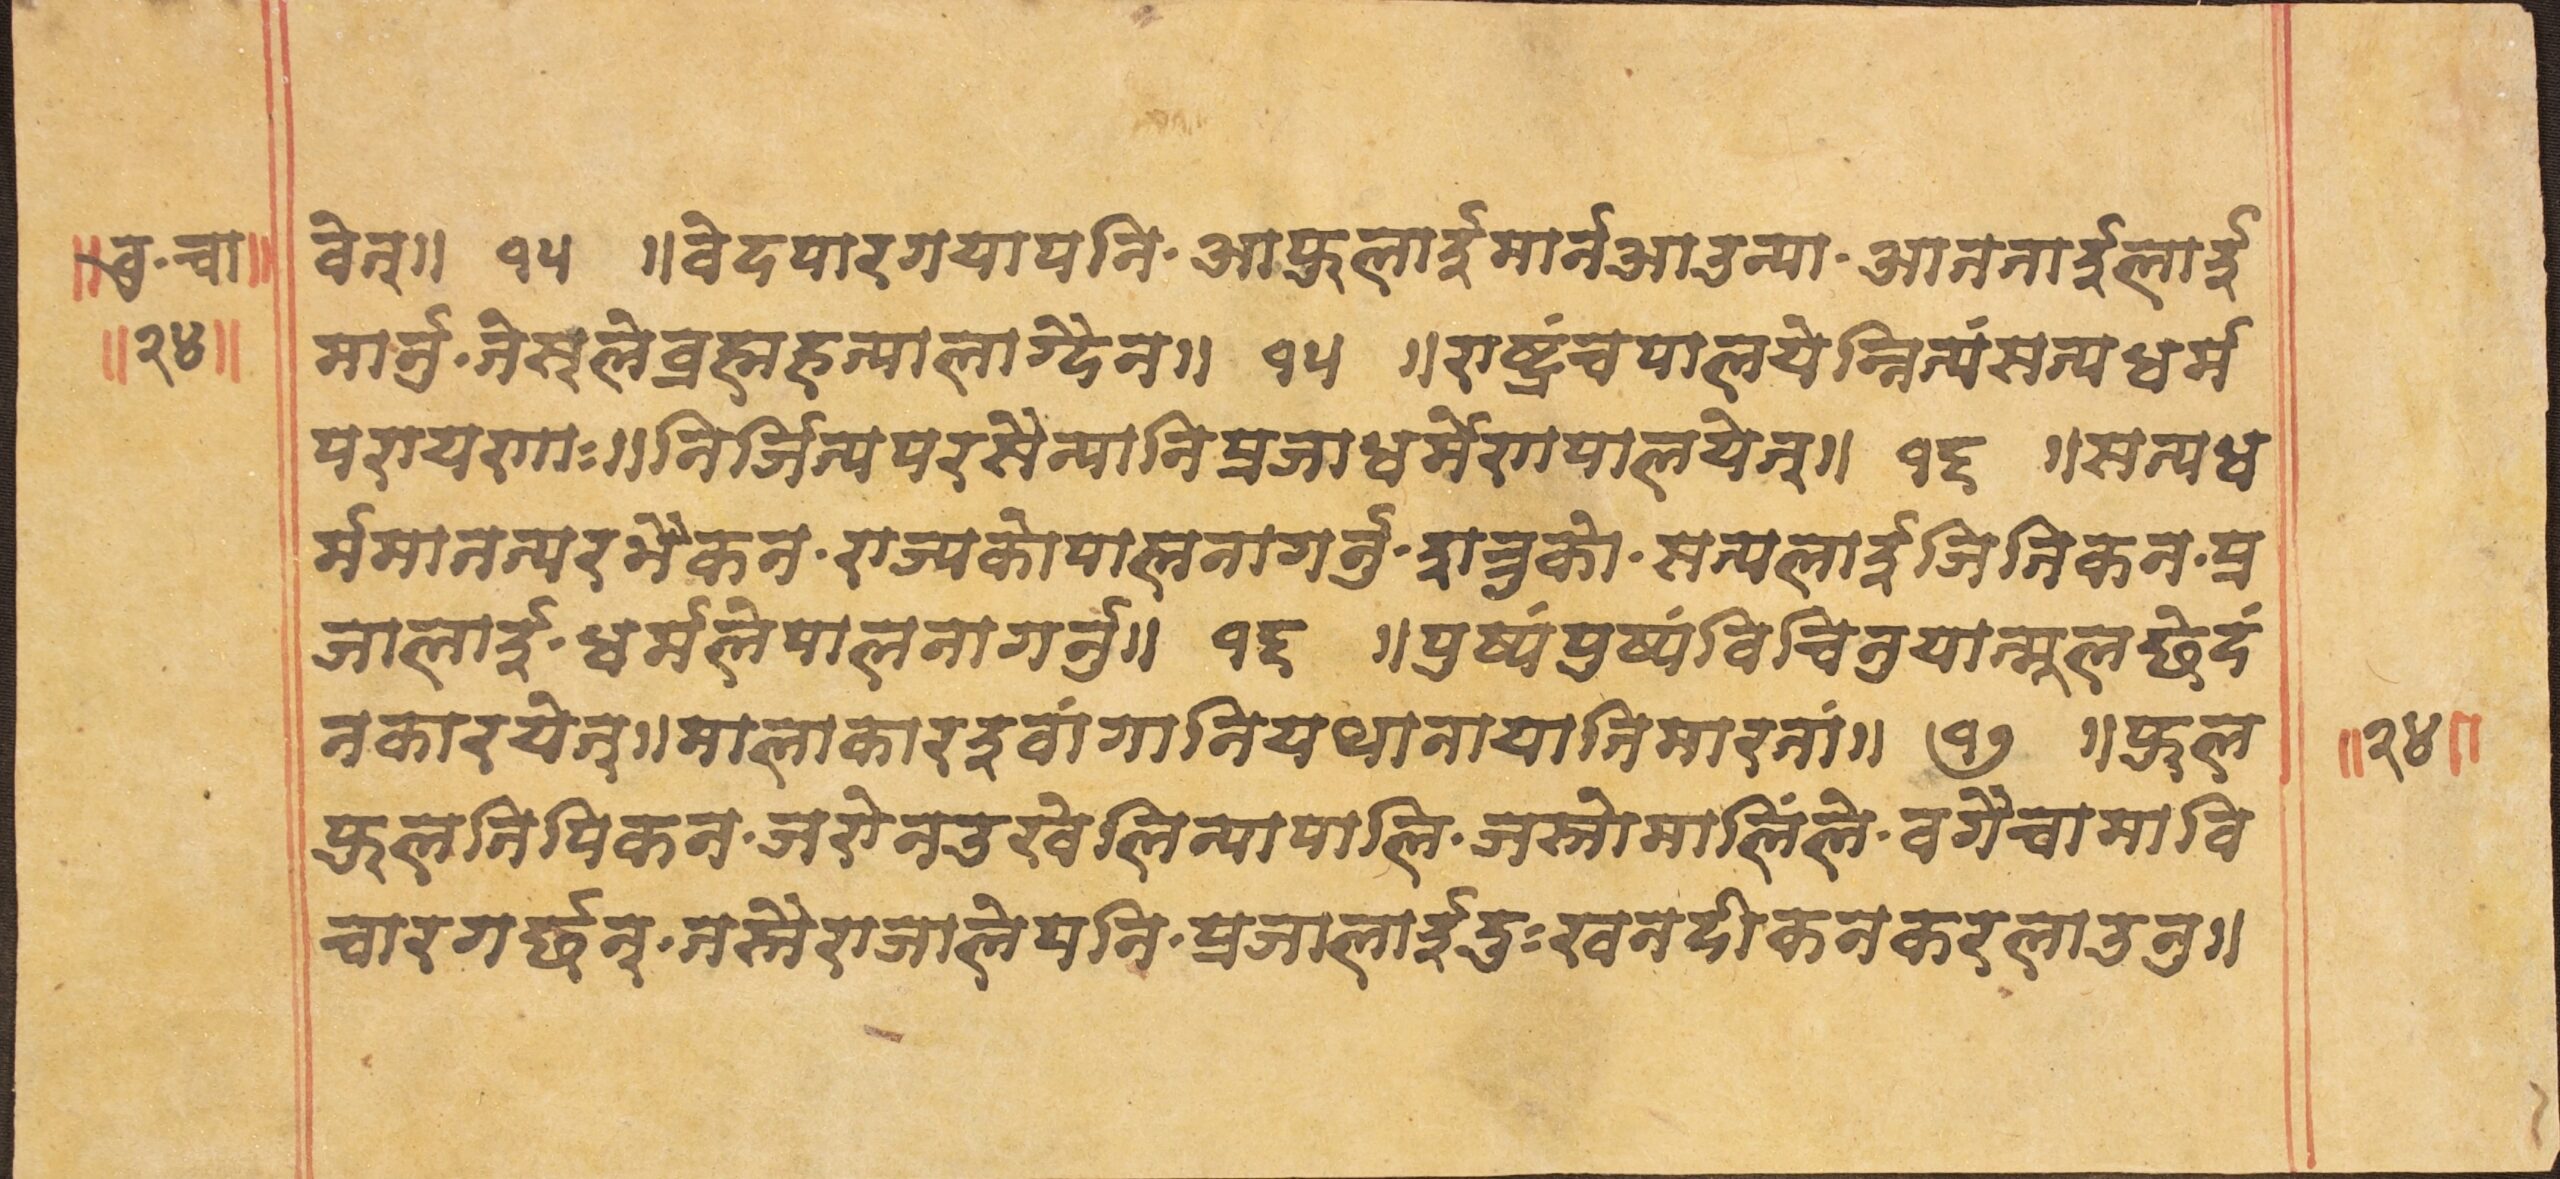 ॥वृ·चा॥
॥२४॥
वेत्॥ १५ ॥वेदपारगयापनि·आफुलाई मार्न आउन्या·आतताईलाई
मार्नु·तेस्ले व्रह्महत्या लाग्दैन॥ १५ ॥राष्ट्रंच पालयेन्नित्यं सत्यधर्म
परायणाः॥निर्जित्य परसैन्यानि प्रजा धर्मेण पालयेत्॥ १६ ॥सत्यध
र्ममा तत्पर भैकन·राज्यको पाल्नना गर्नु·शत्रुको·सन्यलाई जितिकन·प्र
जालाई·धर्मले पालना गर्नु॥ १६ ॥पुष्पं पुष्पं विचिनुयान्मूलछेदं
न कारयेत्॥मालाकार इवांगानि यथा नायाति मारतां॥ १७ ॥फुल
फुल टिपिकन·जरो नउखेलित्या पालि·जस्तो मालिंले·वगैचामा वि
चार गर्छन्·तस्तै राजाले पनि·प्रजालाई दुःख नदीकन कर लाउनु॥
॥२४॥